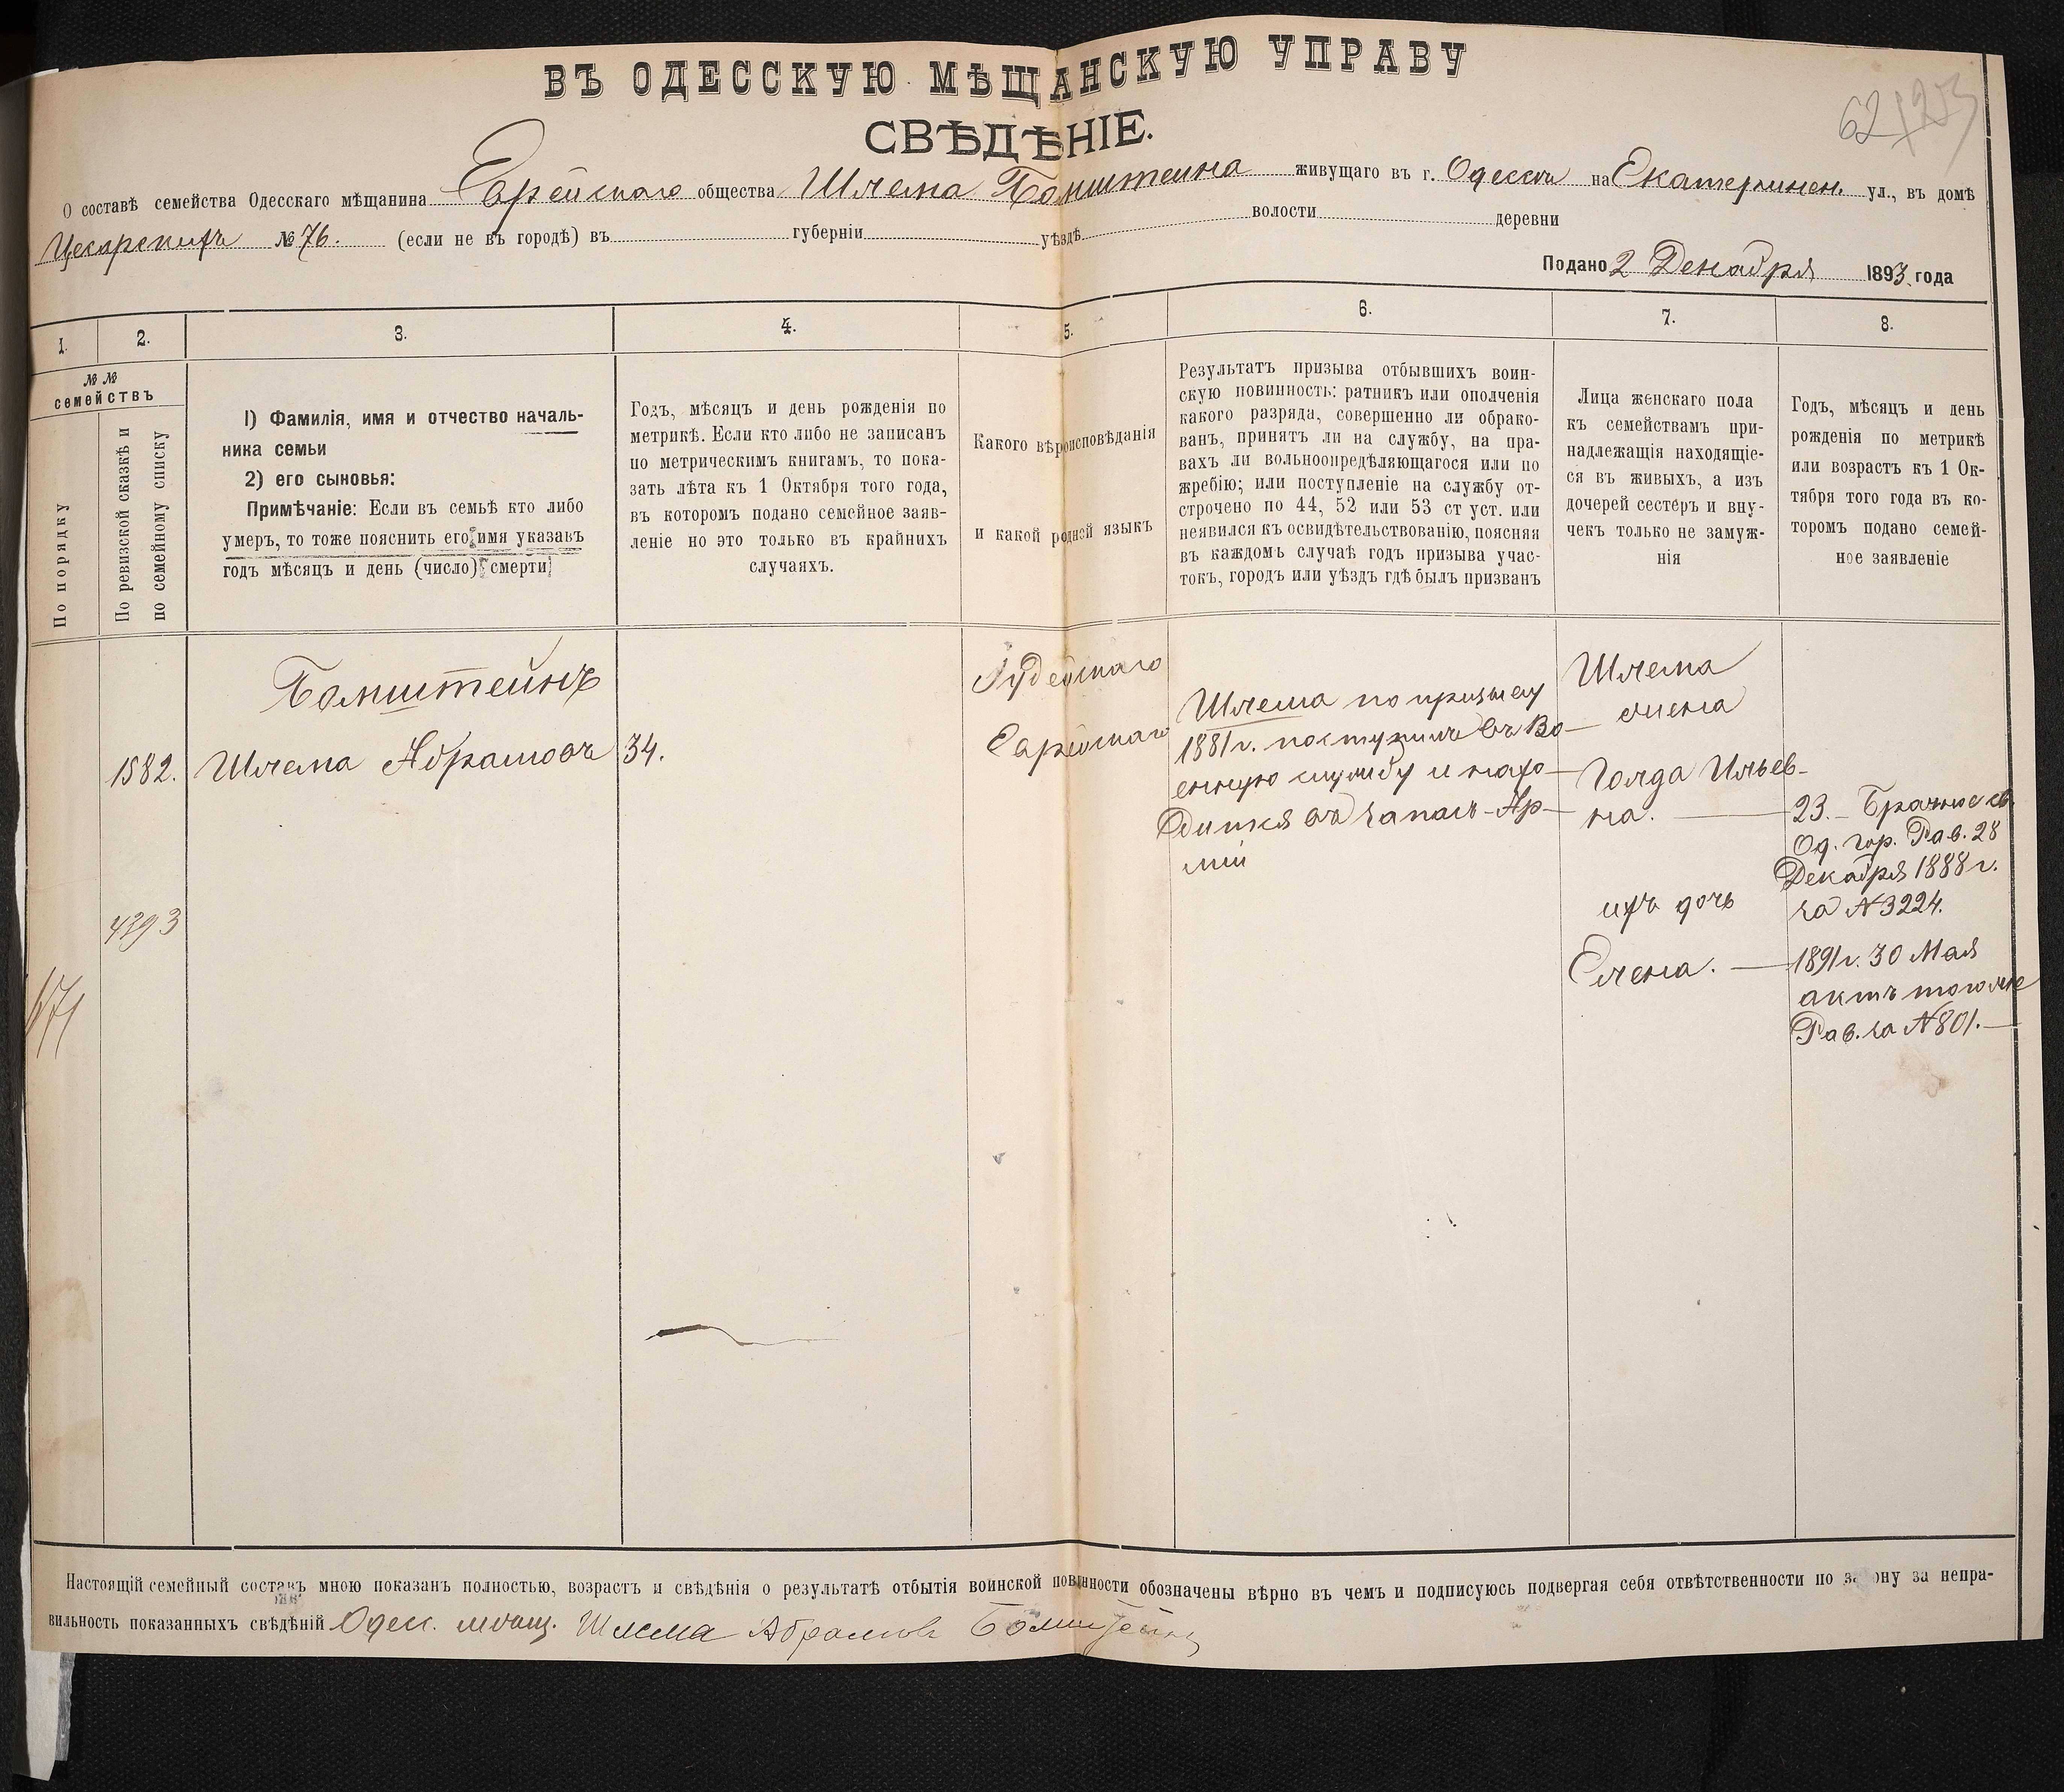 ВЪ ОДЕССКУЮ МѢЩАНСКУЮ УПРАВУ
СВѢДѢНІЕ.
62
О составѣ семейства Одесскаго мѣщанина Еврейскаго общества Шлема Бомштейна живущаго въ г. Одессѣ на Екатеринен. ул., въ домѣ
Цесарскихъ № 76. (если не въ городѣ) въ губерніи уѣздѣ волости деревни
Подано 2 Декабря 1893 года
1. 2. 3. 4. 5. 6. 7. 8.
№ №
семействъ
По порядку
По ревизской сказкѣ и
по семейному списку
1) Фамилія, имя и отчество началь-
ника семьи
2) его сыновья:
Примѣчаніе: Если въ семьѣ кто либо
умеръ, то тоже пояснить его имя указавъ
годъ мѣсяцъ и день (число) смерти
Годъ, мѣсяцъ и день рожденія по
метрикѣ. Если кто либо не записанъ
по метрическимъ книгамъ, то пока-
зать лѣта къ 1 Октября того года,
въ которомъ подано семейное заяв-
леніе но это только въ крайнихъ
случаяхъ.
Какого вѣроисповѣданія
и какой родной языкъ
Результатъ призыва отбывшихъ воин-
скую повинность: ратникъ или ополченія
какого разряда, совершенно ли обрако-
ванъ, принятъ ли на службу, на пра-
вахъ ли вольноопредѣляющагося или по
жребію; или поступленіе на службу от-
строчено по 44, 52 или 53 ст уст. или
неявился къ освидѣтельствованію, поясняя
въ каждомъ случаѣ годъ призыва учас-
токъ, городъ или уѣздъ гдѣ былъ призванъ
Лица женскаго пола
къ семействамъ при-
надлежащія находящіе-
ся въ живыхъ, а изъ
дочерей сестеръ и вну-
чекъ только не замуж-
нія
Годъ, мѣсяцъ и день
рожденія по метрикѣ
или возрастъ къ 1 Ок-
тября того года въ ко-
торомъ подано семей-
ное заявленіе
1582.
4393
171
Бомштейнъ
Шлема Абрамовъ
34.
Іудейскаго
Еврейскаго
Шлема по призыву
1881 г. поступилъ въ Во-
енную службу и нахо-
дится въ запасъ Ар-
міи
Шлема
жена
Голда Ильев-
на.
ихъ дочь
Елена.
23. Брачное св.
Од. гор. Рав. 28
Декабря 1888 г.
за N 3224.
1891 г. 30 Мая
актъ того же
Рав. за N 801.
Настоящій семейный составъ мною показанъ полностью, возрастъ и свѣдѣнія о результатѣ отбытія воинской повинности обозначены вѣрно въ чемъ и подписуюсь подвергая себя отвѣтственности по закону за непра-
вильность показанныхъ свѣдѣній Одес. мѣщ. Шлема Абрамовъ Бомштейнъ